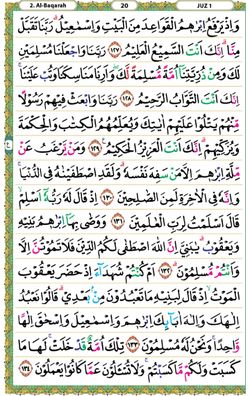 2. Al-Baqarah 20 JUZ 1
وَإِذْ يَرْفَعُ إِبْرٰهِمُ الْقَوَاعِدَ مِنَ الْبَيْتِ وَإِسْمٰعِيلُ ۖ رَبَّنَا تَقَبَّلْ
مِنَّا ۖ إِنَّكَ أَنْتَ السَّمِيعُ الْعَلِيمُ ﴿١٢٧﴾ رَبَّنَا وَاجْعَلْنَا مُسْلِمَيْنِ
لَكَ وَمِنْ ذُرِّيَّتِنَا أُمَّةً مُسْلِمَةً لَكَ وَأَرِنَا مَنَاسِكَنَا وَتُبْ عَلَيْنَا ۖ
إِنَّكَ أَنْتَ التَّوَّابُ الرَّحِيمُ ﴿١٢٨﴾ رَبَّنَا وَابْعَثْ فِيهِمْ رَسُولًا
مِنْهُمْ يَتْلُوا عَلَيْهِمْ اٰيٰتِكَ وَيُعَلِّمُهُمُ الْكِتٰبَ وَالْحِكْمَةَ
وَيُزَكِّيهِمْ ۚ إِنَّكَ أَنْتَ الْعَزِيزُ الْحَكِيمُ ﴿١٢٩﴾ وَمَنْ يَرْغَبُ عَنْ
مِلَّةِ إِبْرٰهِمَ إِلَّا مَنْ سَفِهَ نَفْسَهُ ۚ وَلَقَدِ اصْطَفَيْنٰهُ فِي الدُّنْيَا ۖ
وَإِنَّهُ فِي الْاٰخِرَةِ لَمِنَ الصّٰلِحِينَ ﴿١٣٠﴾ إِذْ قَالَ لَهُ رَبُّهُ أَسْلِمْ ۖ
قَالَ أَسْلَمْتُ لِرَبِّ الْعٰلَمِينَ ﴿١٣١﴾ وَوَصّٰى بِهَا إِبْرٰهِمُ بَنِيهِ
وَيَعْقُوبُ ۖ يٰبَنِيَّ إِنَّ اللّٰهَ اصْطَفٰى لَكُمُ الدِّينَ فَلَا تَمُوتُنَّ إِلَّا
وَأَنْتُمْ مُسْلِمُونَ ﴿١٣٢﴾ أَمْ كُنْتُمْ شُهَدَاءَ إِذْ حَضَرَ يَعْقُوبَ
الْمَوْتُ ۙ إِذْ قَالَ لِبَنِيهِ مَا تَعْبُدُونَ مِنْ بَعْدِي ۖ قَالُوا نَعْبُدُ
إِلٰهَكَ وَإِلٰهَ اٰبَائِكَ إِبْرٰهِمَ وَإِسْمٰعِيلَ وَإِسْحٰقَ إِلٰهًا
وَاحِدًا ۖ وَنَحْنُ لَهُ مُسْلِمُونَ ﴿١٣٣﴾ تِلْكَ أُمَّةٌ قَدْ خَلَتْ ۖ لَهَا مَا
كَسَبَتْ وَلَكُمْ مَا كَسَبْتُمْ ۖ وَلَا تُسْئَلُونَ عَمَّا كَانُوا يَعْمَلُونَ ﴿١٣٤﴾